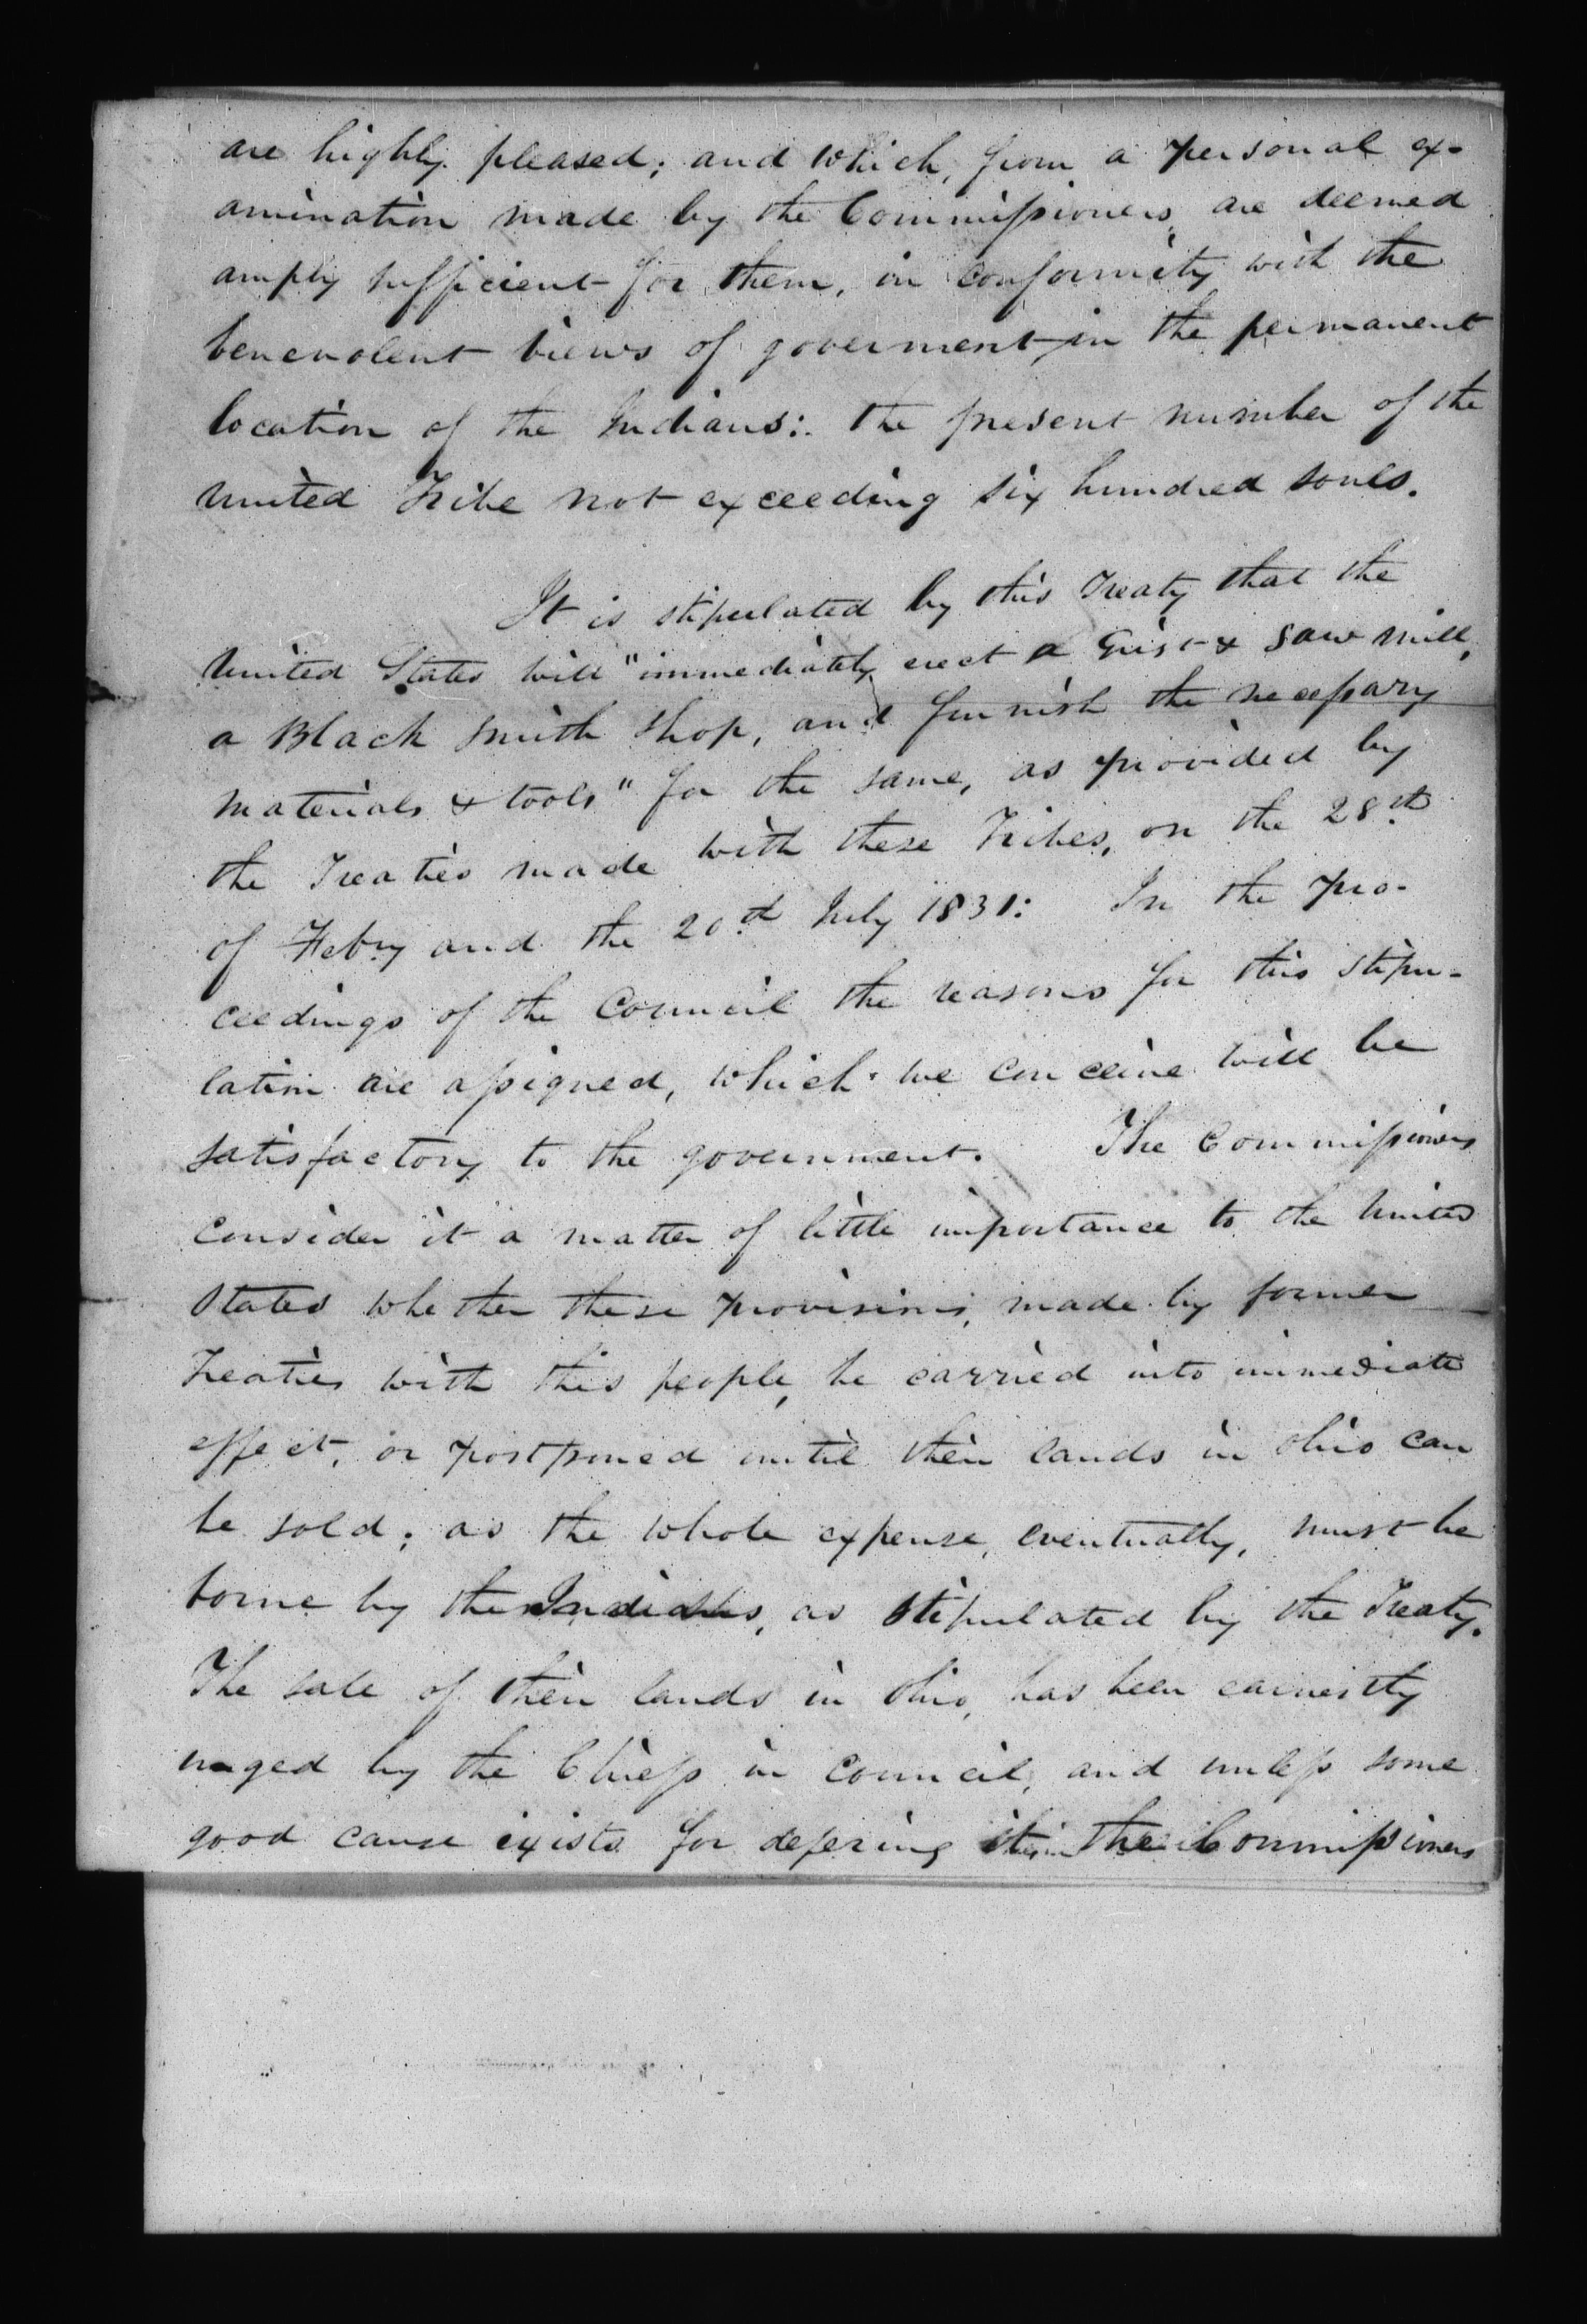 are highly pleased; and which, from a personal ex-
amination made by the Commissioners, are deemed
amply sufficient for them, in conformity with the
benevolent views of goverment, in the permanent
location of the Indians: the present number of the
united Tribe not exceeding six hundred souls.
It is stipulated by this Treaty that the
United States will "immediately erect a Grist & saw mill,
a Black smith shop, and furnish the necessary
materials & tools" for the same, as provided by
the Treaties made with these Tribes, on the 28th
of Feby and the 20th July 1831: In the pro-
ceedings of the Council the reasons for this stipu-
lation are assigned, which we conceive will be
satisfactory to the government. The Commissioners
consider it a matter of little importance to the United
States whether these provisions, made by former
Treaties with this people, be carried into immediate
effect, or postponed until their lands in Ohio can
be sold; as the whole expense, eventually, must be
borne by the Indians, as stipulated by the Treaty.
The sale of their lands in Ohio, has been earnestly
urged by the Chiefs in Council, and unless some
good cause exists for defering it, the Commissioners